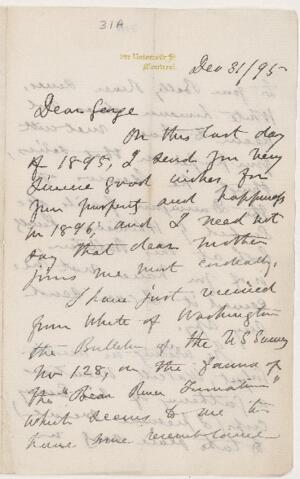 31A
University St
Montreal.
Dec 31/95
Dear George
On this last day
of 1895, I send you very
sincere good wishes for
your prosperity and happiness
in 1896, and I need not
say that dear mother
joins me most cordially,
I have just received
from White of Washington
the Bulletin of the U S Survey
No 128, on the fauna of
the "Bear River Formation"
which seems to me to
have some resemblance